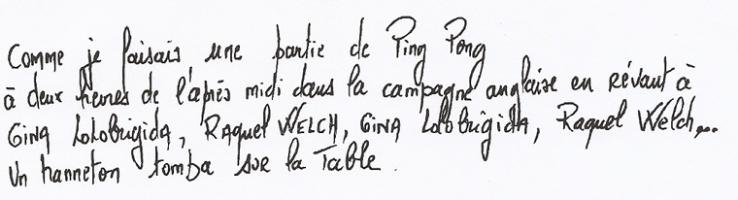 Comme je faisais une partie de Ping Pong
à deux heures de l'après midi dans la campagne anglaise en rêvant à
Gina Lolobrigida, Raquel WELCH, Gina Lolobrigida, Raquel Welch...
Un hanneton tomba sur la Table.